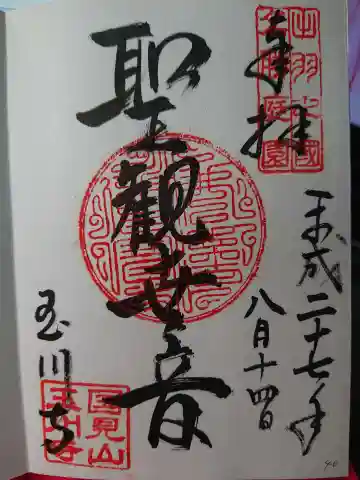 奉拝
平成二十七年
八月十四日
聖観世音
玉川寺
出羽之國
国見山
玉川寺